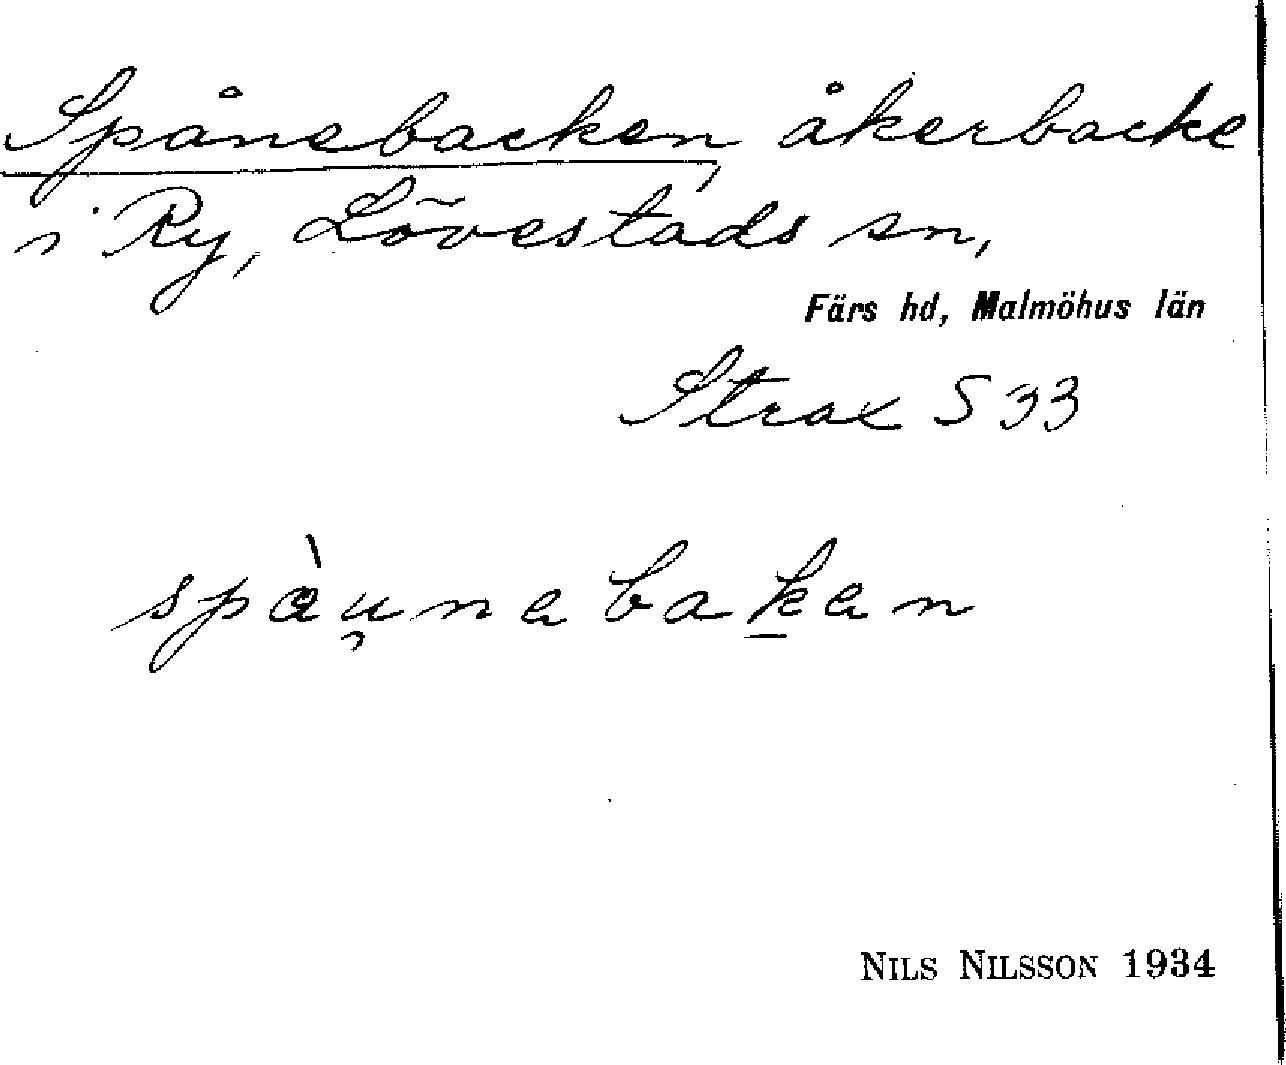 Spånebacken, åkerbacke
i Ry, Lövestads sn,
Färs hd, Malmöhus län
Strax S 33
NILS NILSSON 1934